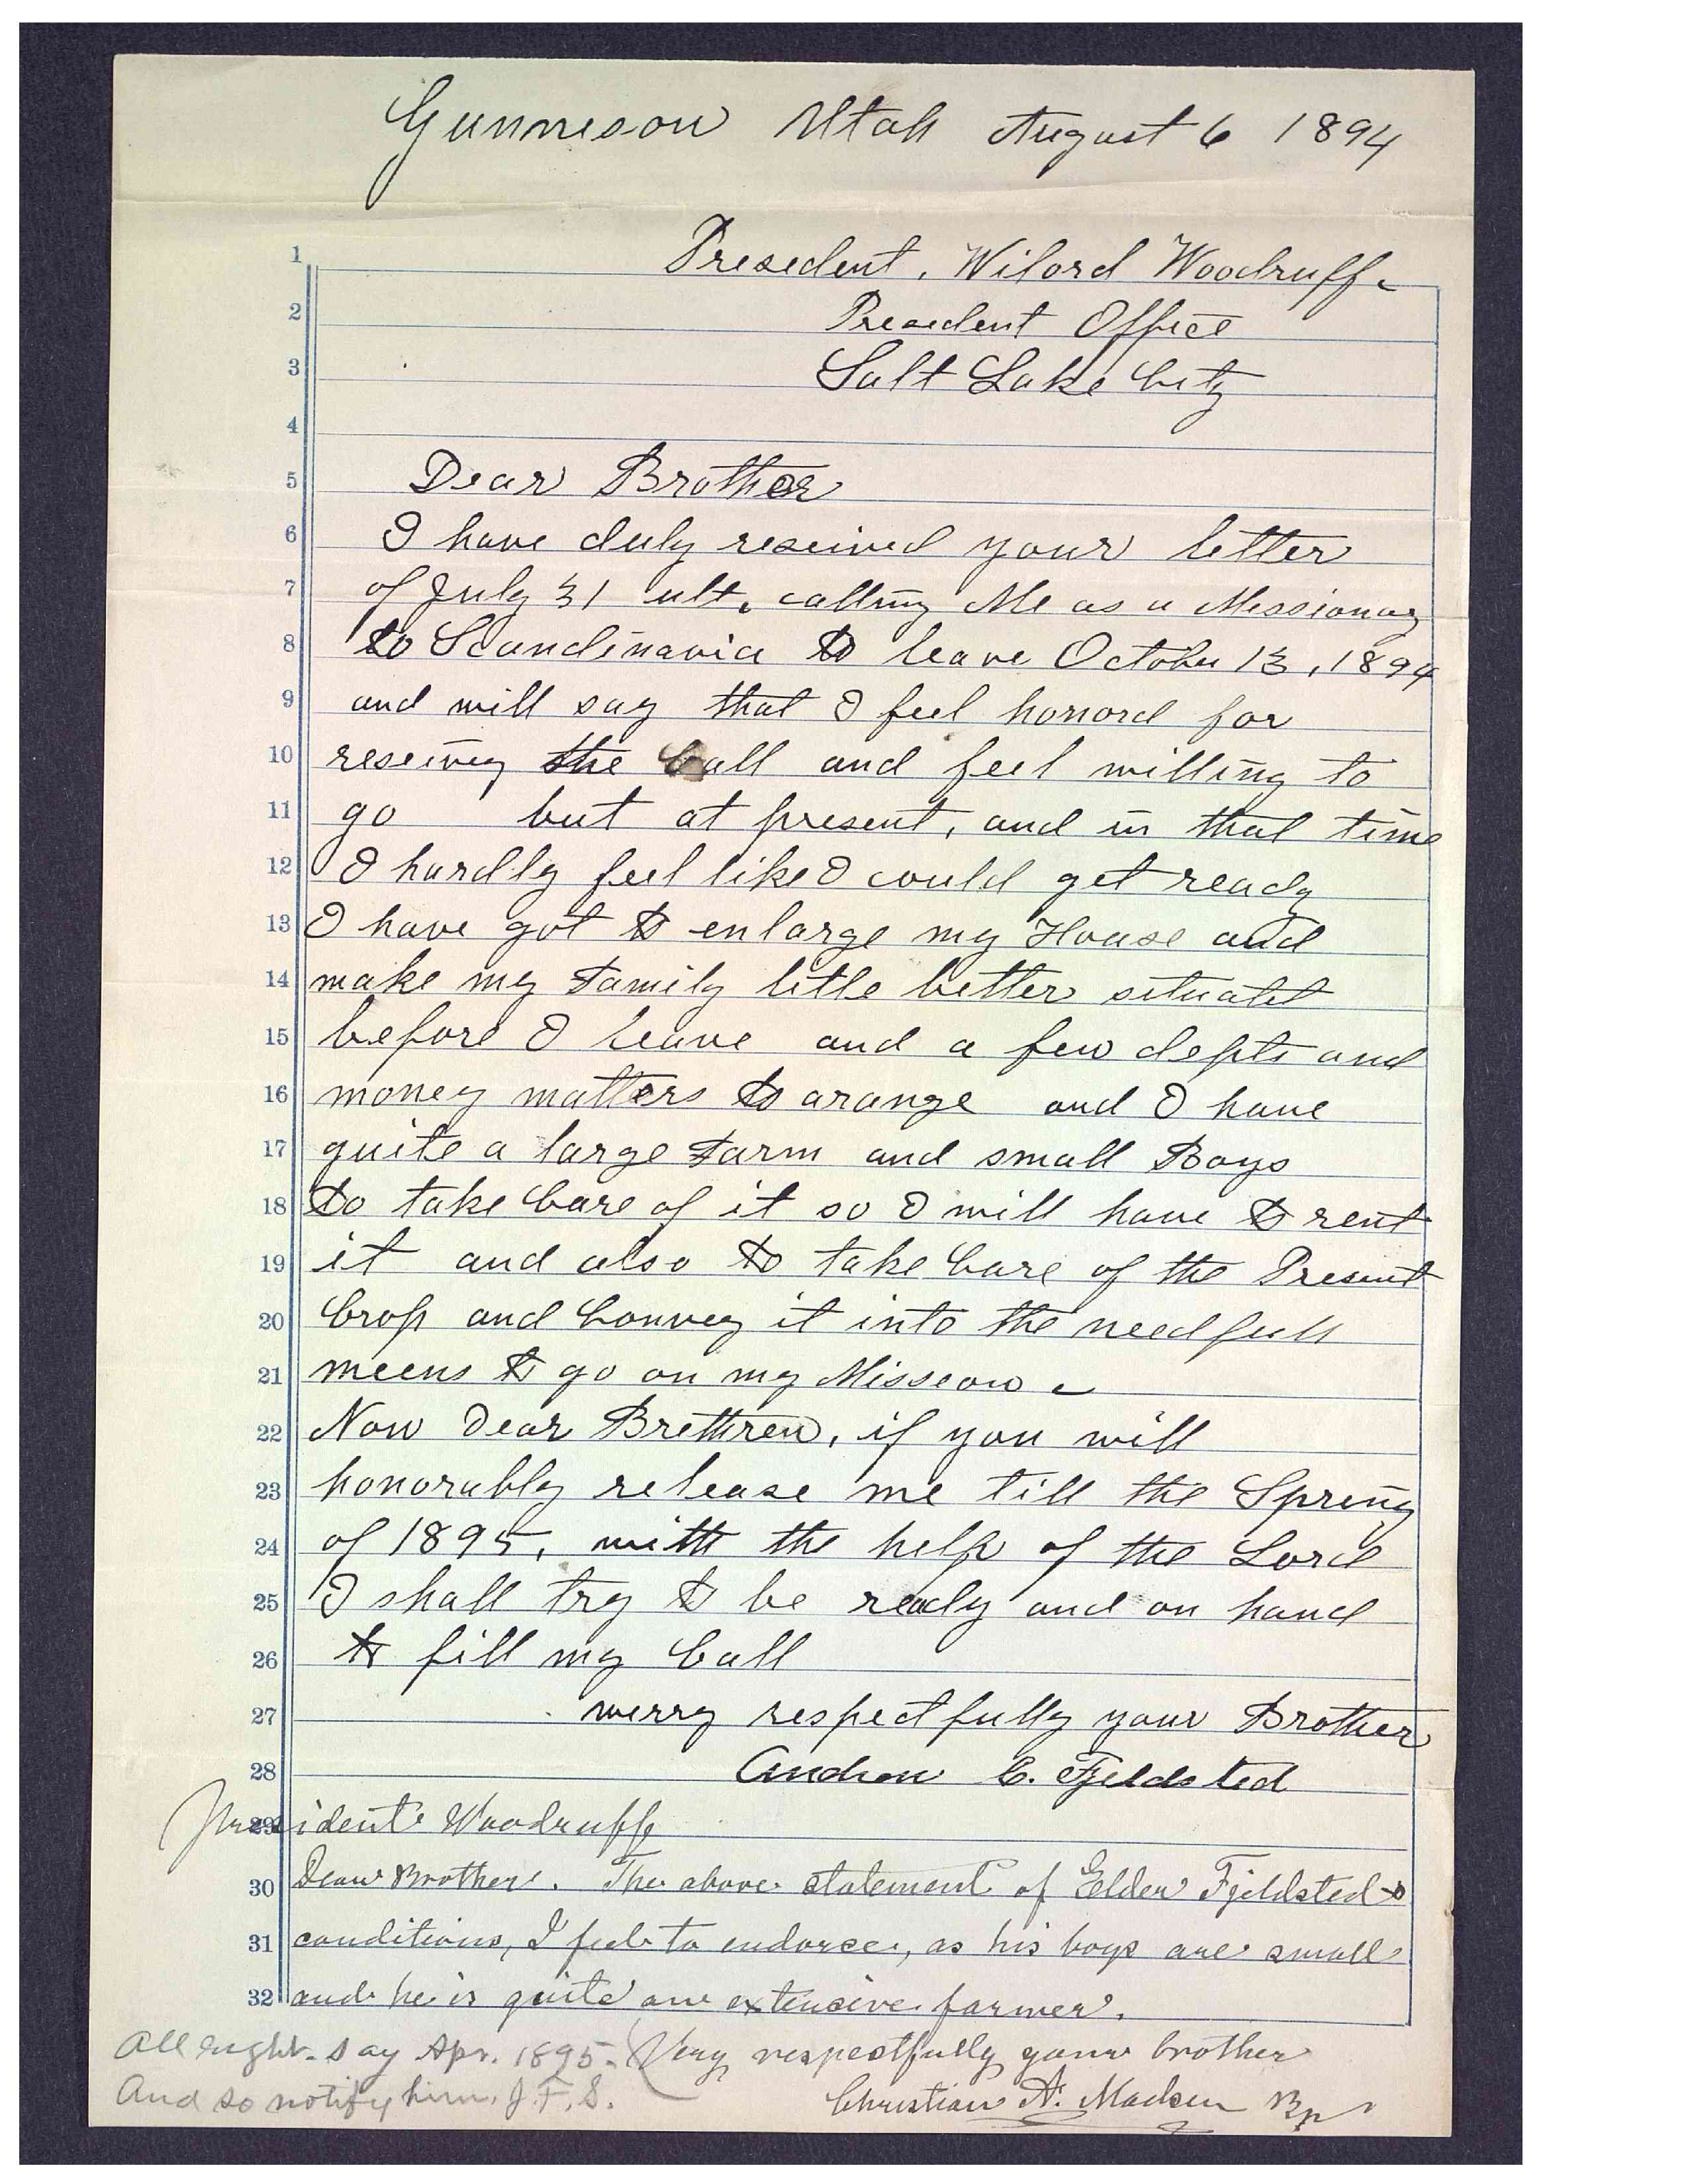 Gunnison Utah August 6 1894
1 President, Wilord Woodruff.
2 President Office
3 Salt Lake City
4
5 Dear Brother
6 I have duly reseived your letter
7 of July 31 ult. calling Me as a Missionary
8 to Scandinavia to leave October 13, 1894
9 and will say that I feel honord for
10 reseiving the Call and feel willing to
11 go but at present, and in that time
12 I hardly feel like I could get ready
13 I have got to enlarge my House and
14 make my Family litle better situatet
15 before I leave and a few depts and
16 money matters to arange and I have
17 quite a large Farm and small Boys
18 to take Care of it so I will have to rent
19 it and also to take Care of the Present
20 Crop and Convey it into the needfull
21 meens to go on my Mission.
22 Now Dear Brethren, if you will
23 honorably release me till the Spring
24 of 1895, with the help of the Lord
25 I shall try to be ready and on hand
26 to fill my Call
27 werry respectfully your Brother
28 Andrew C. Fjeldsted
29 President Woodruff
30 Dear Brother. The above statement of Elder Fjeldsted's
31 conditions, I feel to endorse, as his boys are small
32 and he is quite an extensive farmer.
All right. say Apr. 1895. Very respectfully your brother
And so notify him. J.F.S. Christian A. Madsen Bp